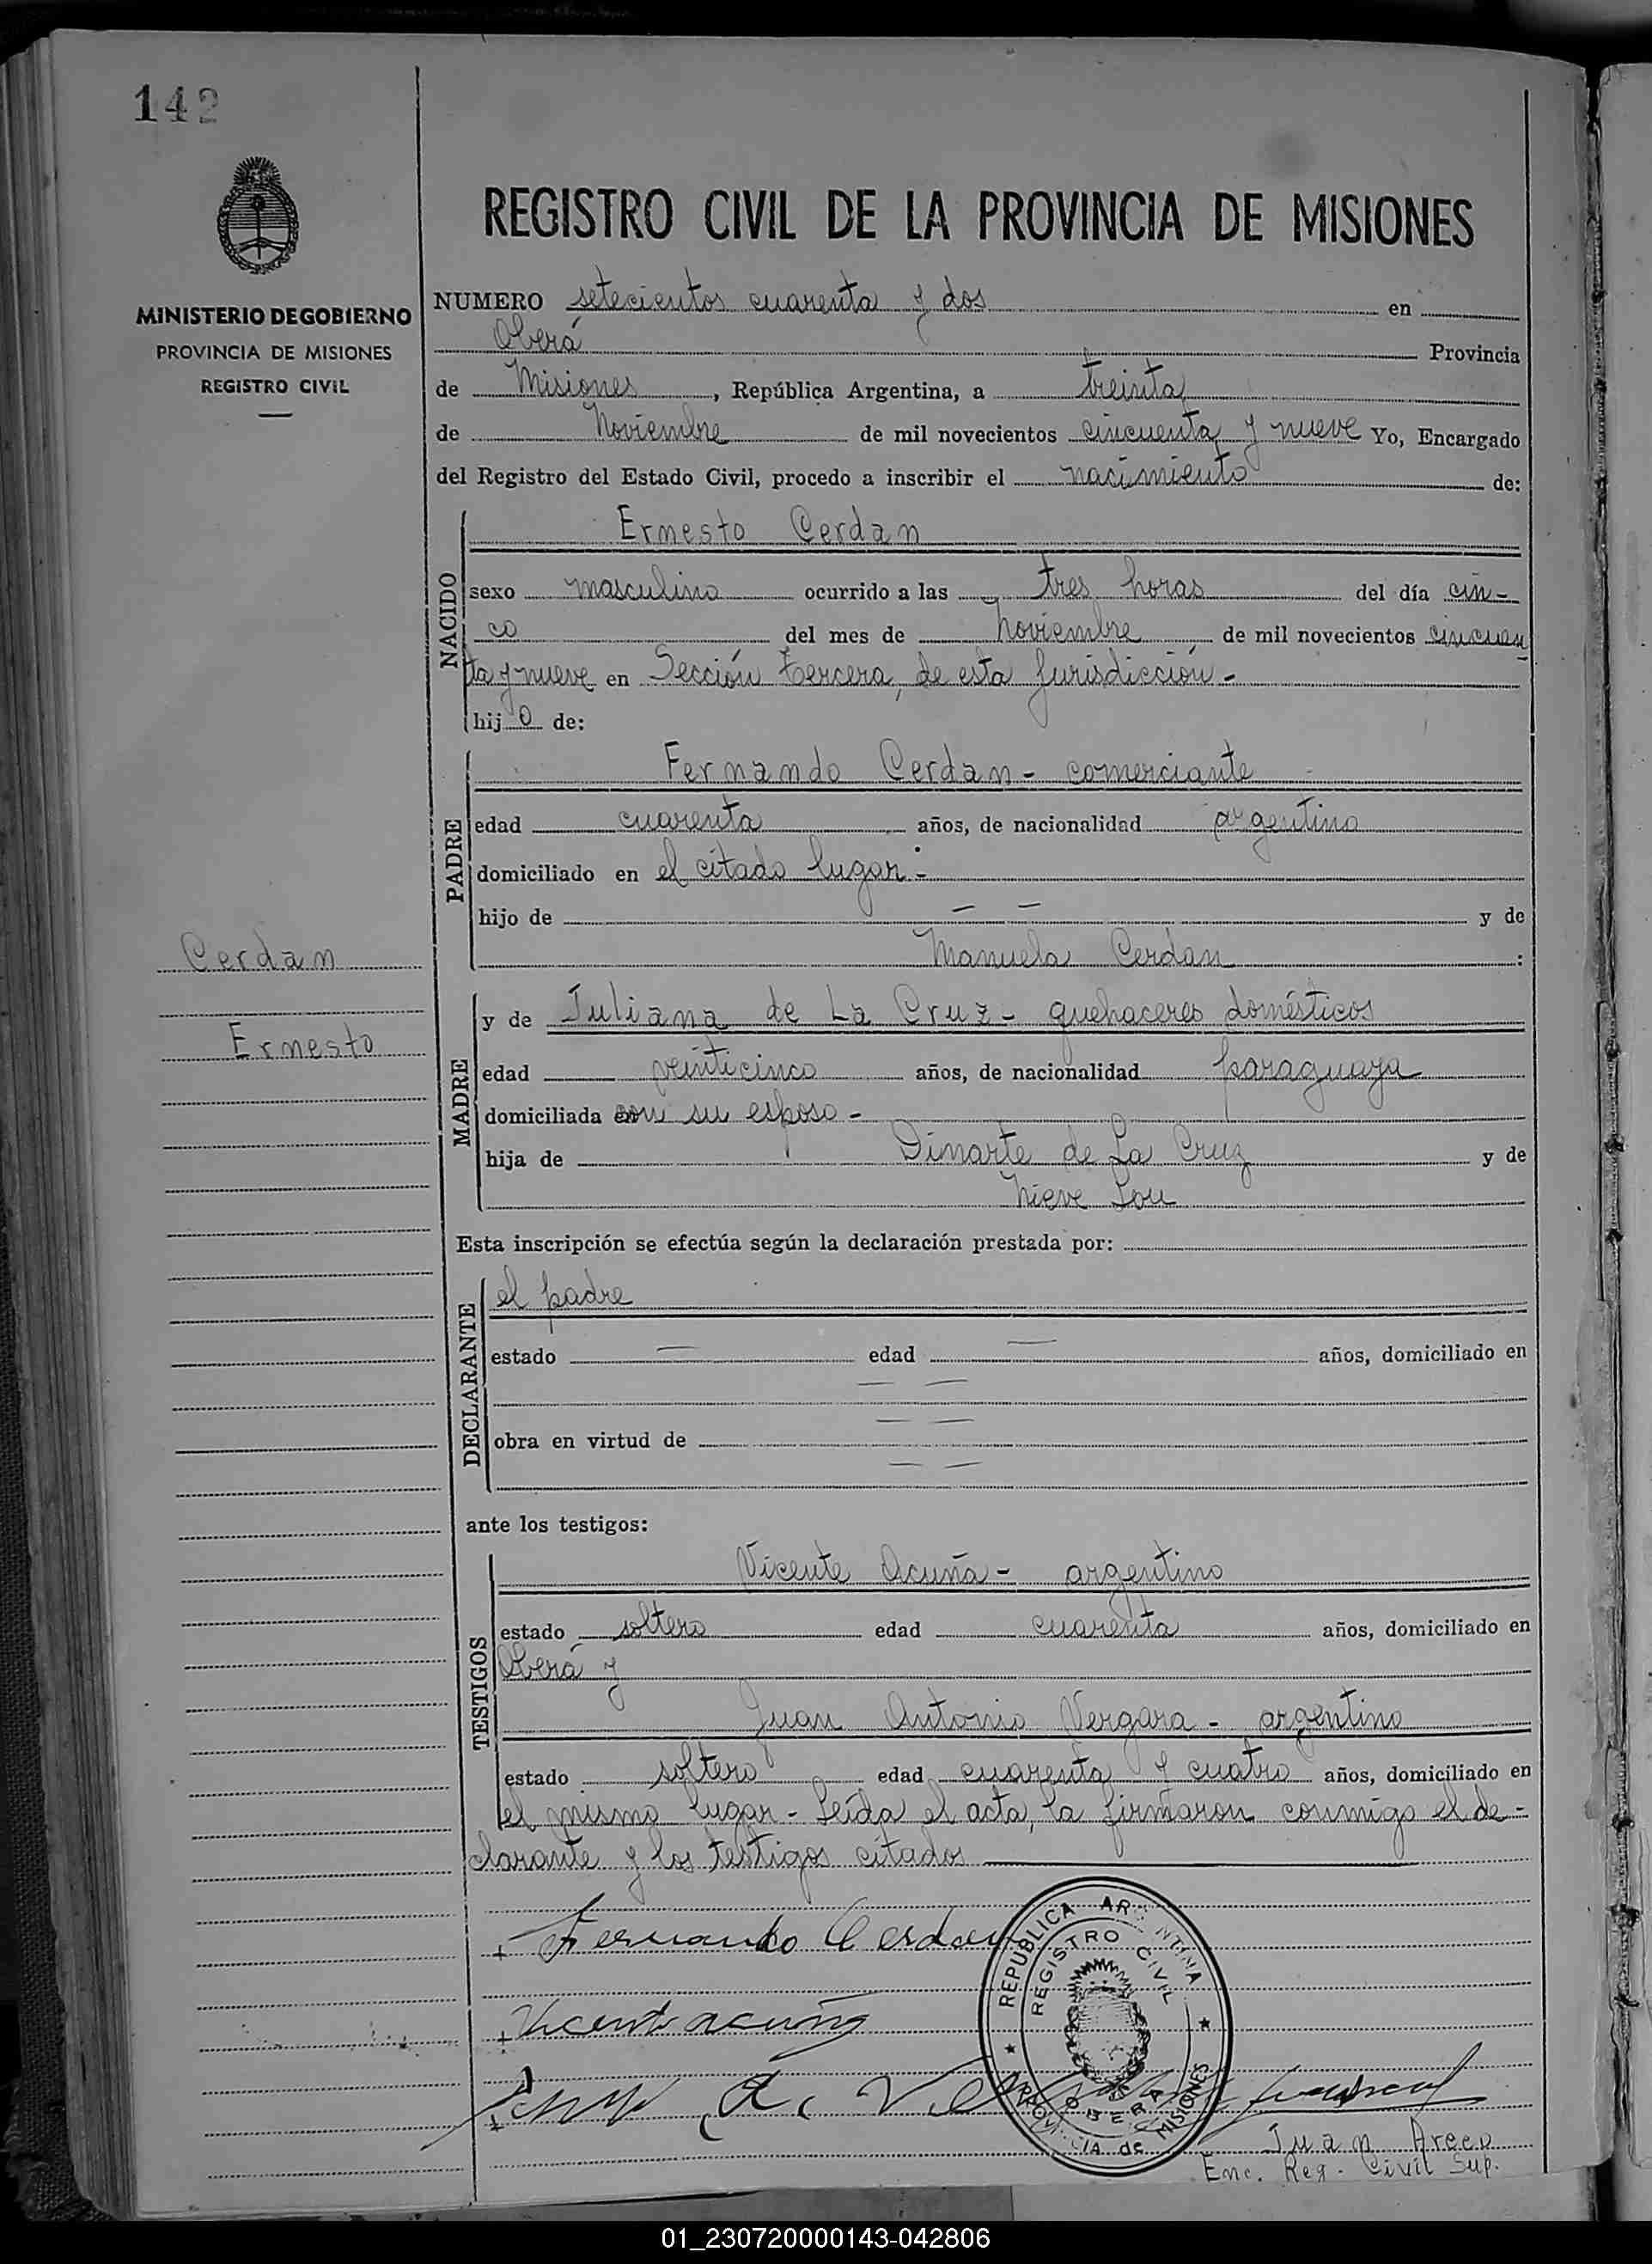 142
MINISTERIO DE GOBIERNO
PROVINCIA DE MISIONES
REGISTRO CIVIL
REGISTRO CIVIL DE LA PROVINCIA DE MISIONES
NUMERO setecientos cuarenta y dos en
Oberá Provincia
de Misiones, República Argentina, a treinta
de Noviembre de mil novecientos cincuenta y nueve Yo, Encargado
del Registro del Estado Civil, procedo a inscribir el nacimiento de:
NACIDO
Ernesto Cerdan
sexo masculino ocurrido a las tres horas del día cin-
co del mes de Noviembre de mil novecientos cincuen
ta y nueve en Sección tercera, de esta Jurisdicción-
hijo de:
PADRE
Fernando Cerdan - comerciante
edad cuarenta años, de nacionalidad argentino
domiciliado en el citado lugar.-
hijo de — — y de
Manuela Cerdan :
Cerdan
Ernesto
MADRE
y de Juliana de La Cruz - quehaceres domésticos
edad veinticinco años, de nacionalidad paraguaya
domiciliada con su esposo -
hija de Dinarte de La Cruz y de
Nieve Lou
Esta inscripción se efectúa según la declaración prestada por:
DECLARANTE
el padre
estado — edad — años, domiciliado en
— —
obra en virtud de — —
— —
ante los testigos:
TESTIGOS
Vicente Acuña - argentino
estado soltero edad cuarenta años, domiciliado en
Oberá y
Juan Antonio Vergara - argentino
estado soltero edad cuarenta y cuatro años, domiciliado en
el mismo lugar - Leída el acta, la firmaron conmigo el de-
clarante y los testigos citados
+ Fernando Cerdan
+ Vicente acuña
+ Juan A. Ve
REPUBLICA ARGENTINA
REGISTRO CIVIL
OBERA
PROVINCIA de MISIONES
Juan Areco
Enc. Reg. Civil Sup.
01_230720000143-042806